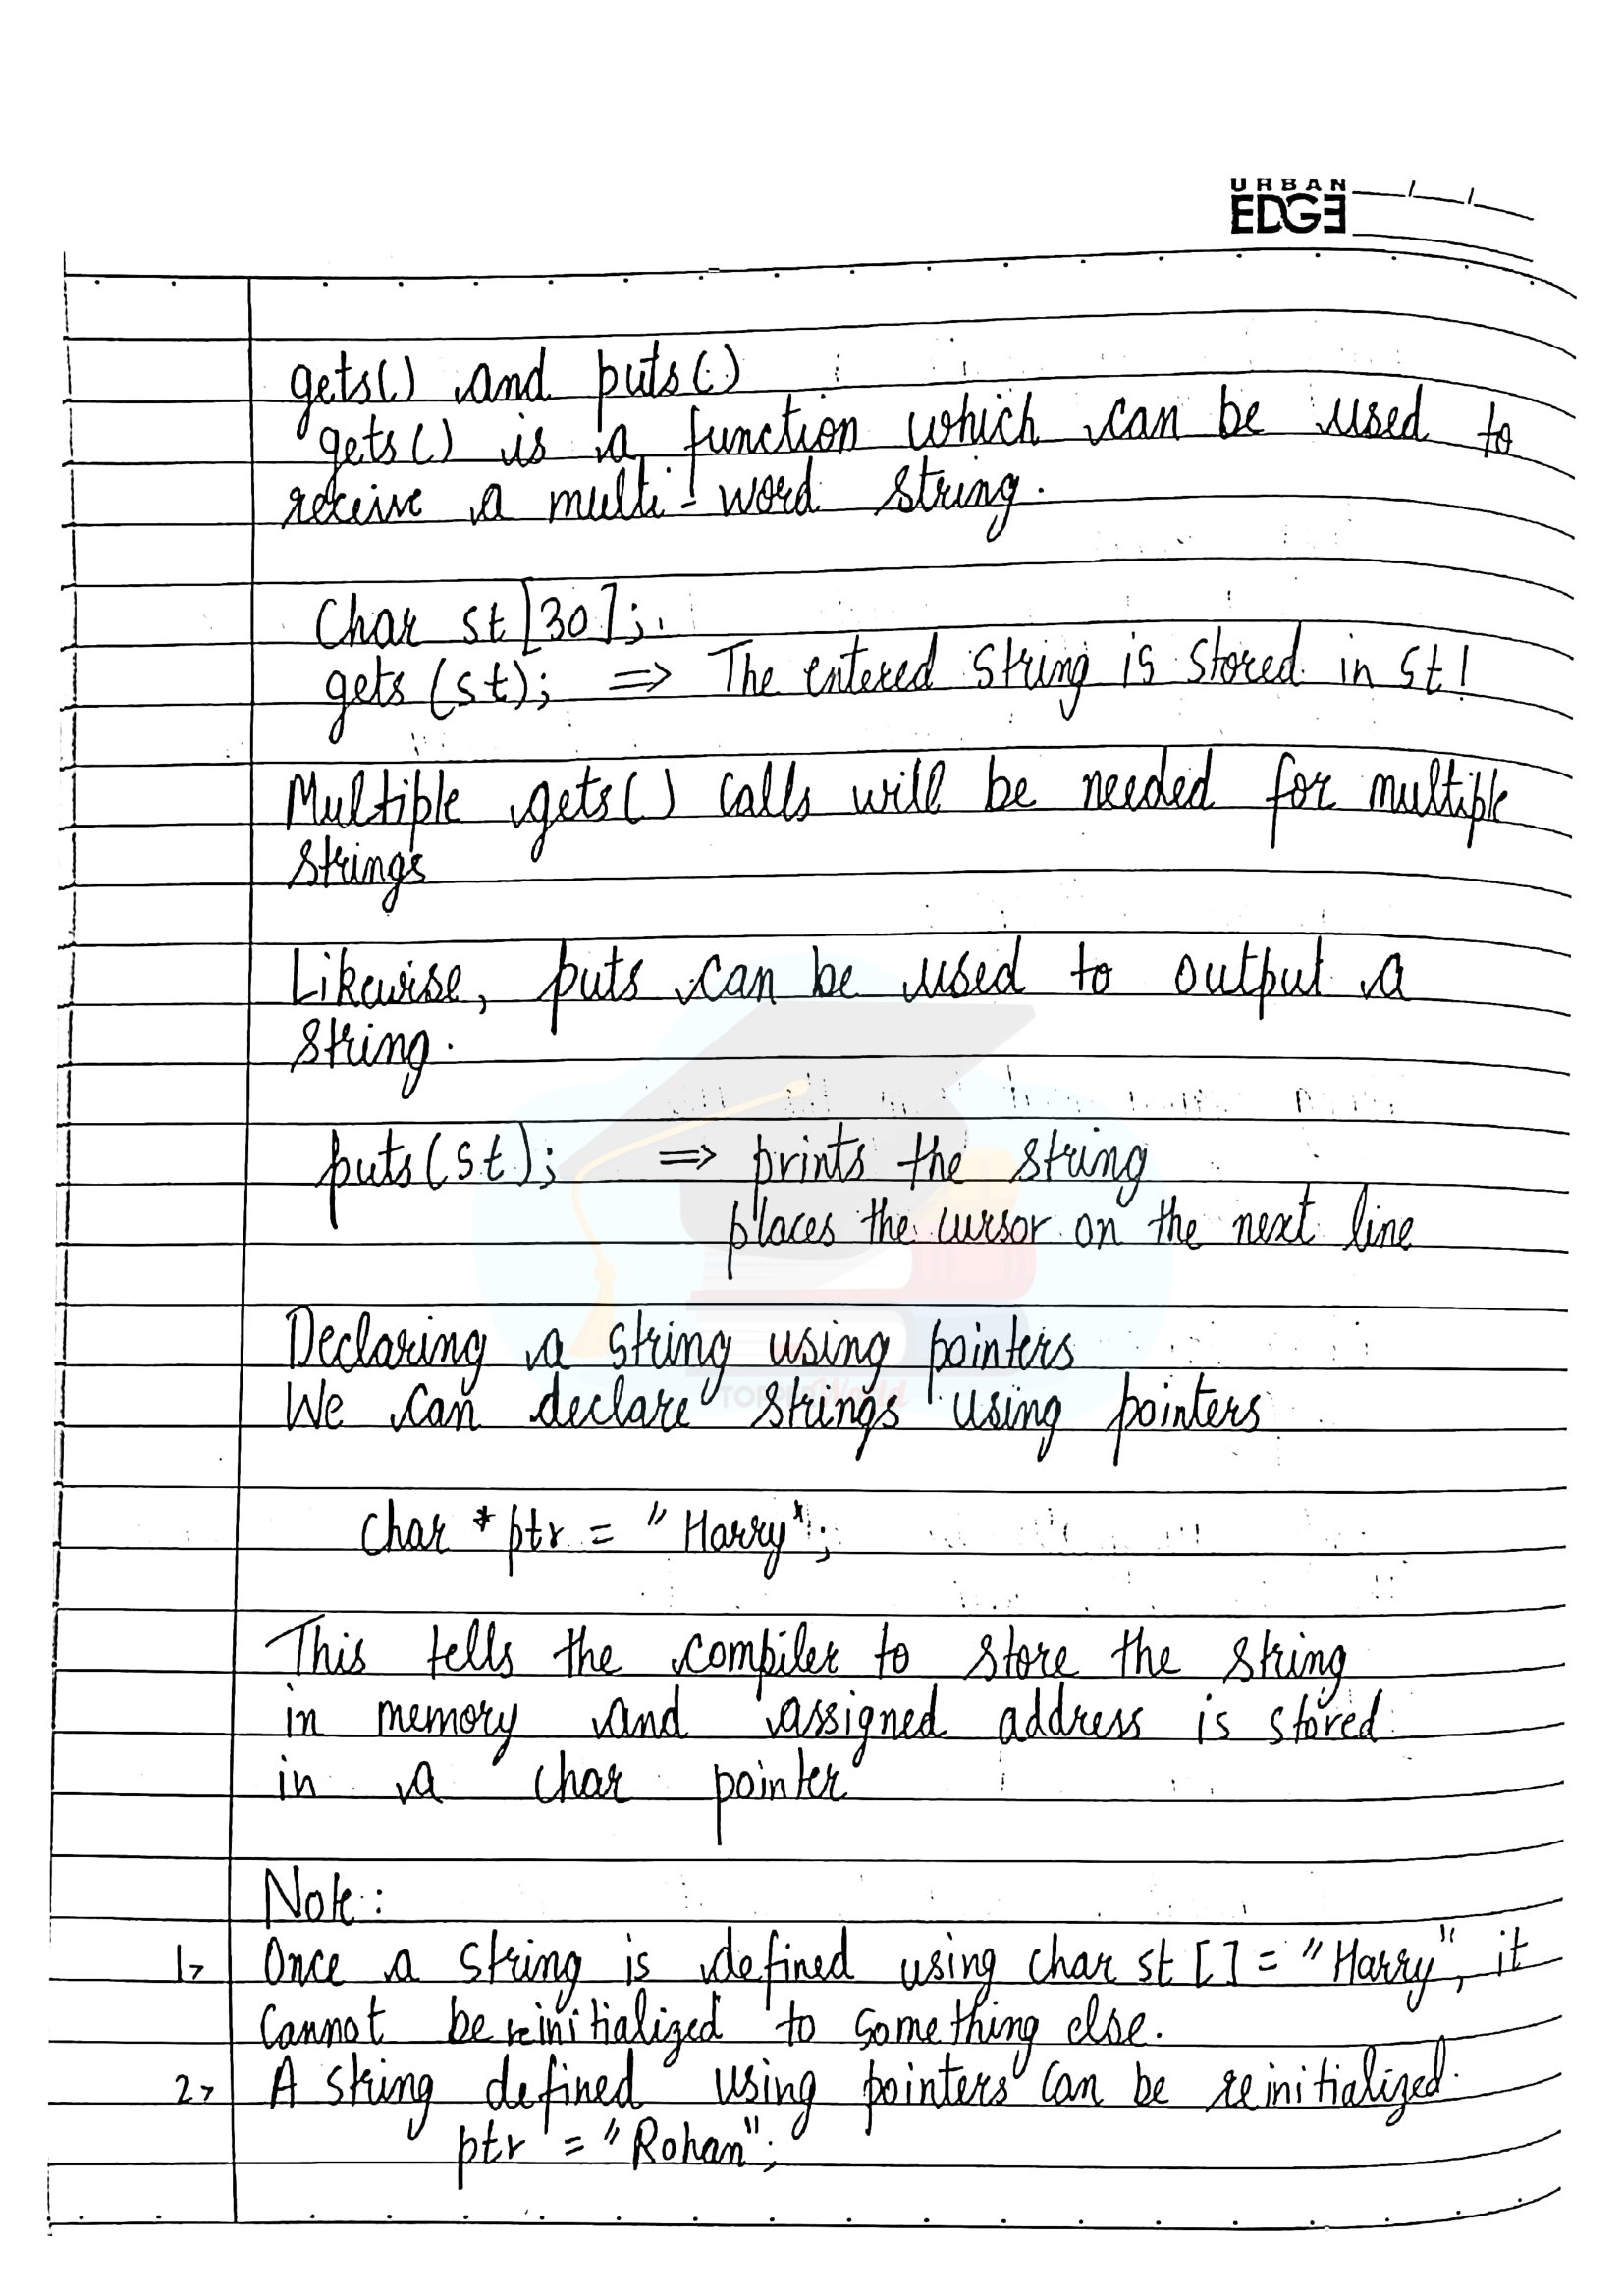 URBAN
EDGE
gets() and puts()
gets() is a function which can be used to
receive a multi-word string.
Char st[30];
gets(st); => The entered string is stored in st!
Multiple gets() calls will be needed for multiple
strings
Likewise, puts can be used to output a
string.
puts(st); => prints the string
places the cursor on the next line
Declaring a string using pointers
We can declare strings using pointers
TOPPERWorld
char *ptr = "Harry";
This tells the compiler to store the string
in memory and assigned address is stored
in a char pointer
Note:
1> Once a string is defined using char st[] = "Harry", it
cannot be reinitialized to something else.
2> A string defined using pointers can be reinitialized.
ptr = "Rohan";